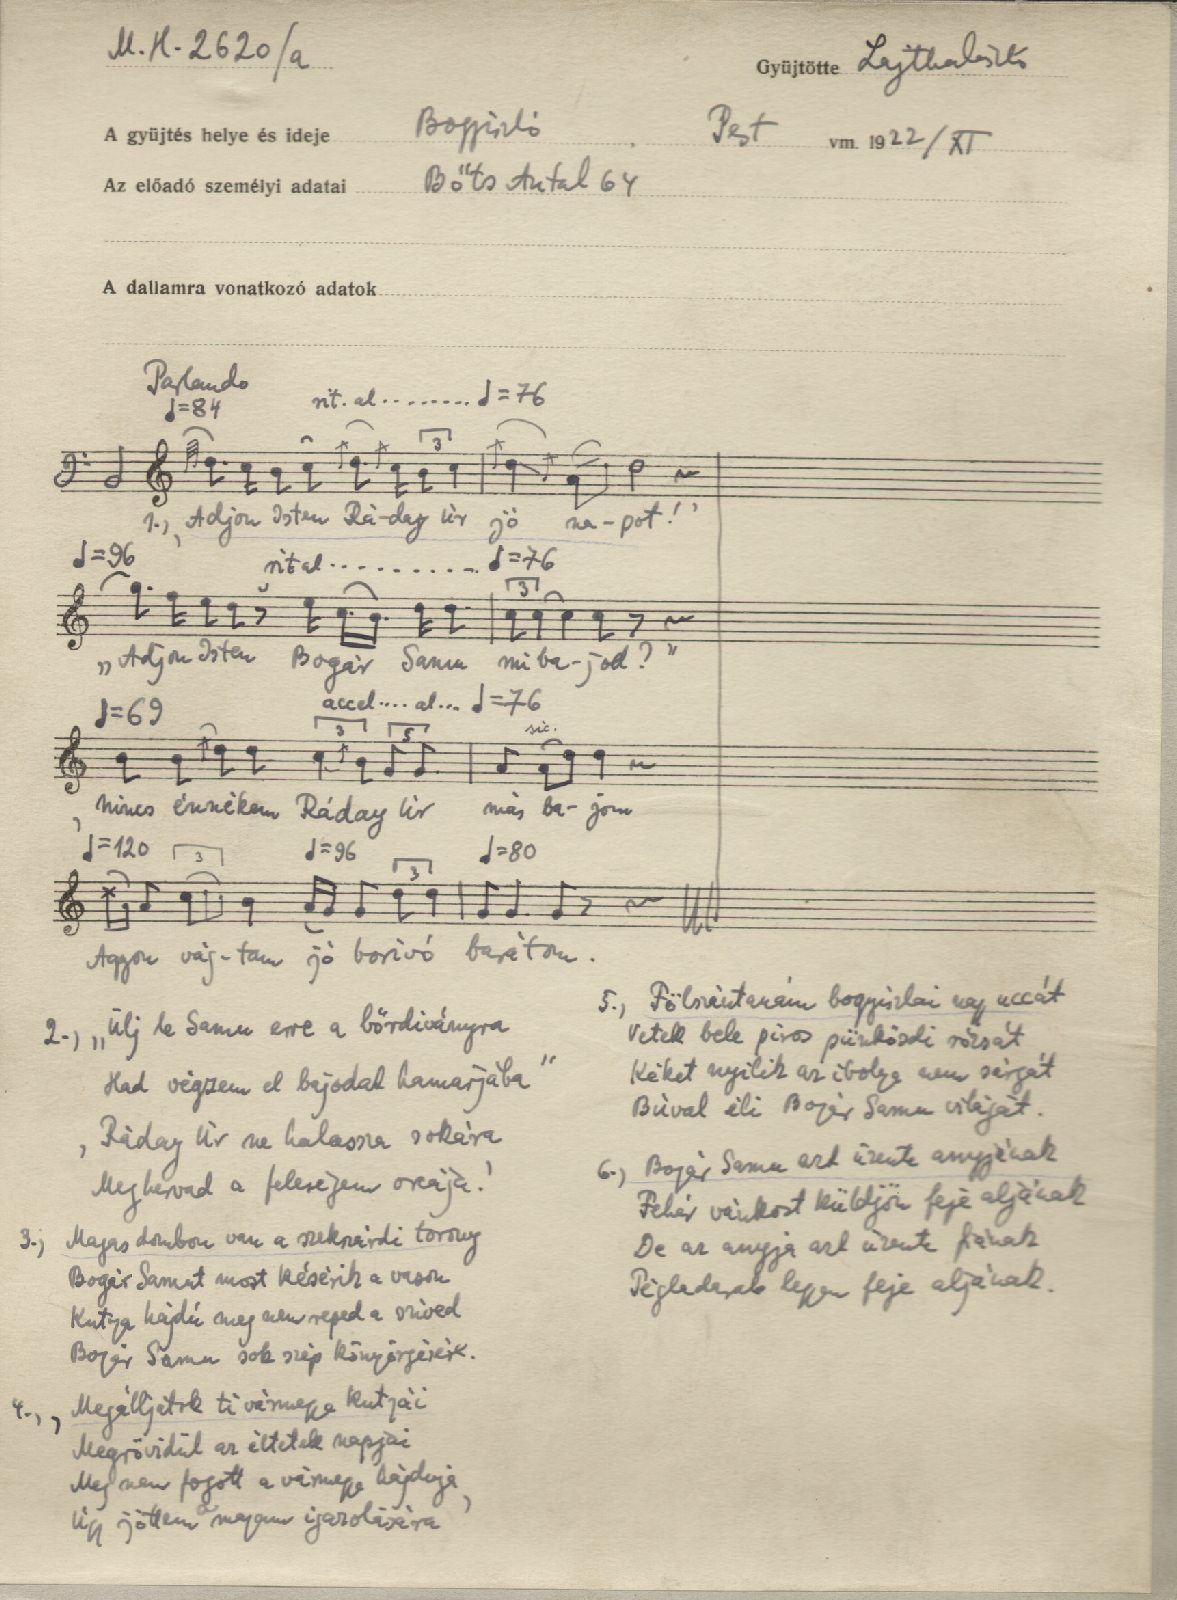 M.H. 2620/a
Gyüjtötte Lajtha László
A gyüjtés helye és ideje Bogyiszló Pest vm. 1922/XI
Az előadó személyi adatai Bőts Antal 64
A dallamra vonatkozó adatok
Parlando
♩=84 rit. al ........ ♩=76
3
1., ‚Adjon Isten Rá-day úr jó na-pot!’
♩=96 rit al .......... ♩=76
3
„Adjon Isten Bogár Samu mi ba-jod?”
♩=69 accel .... al... ♩=76
3 5 sic.
‚nincs énnékem Ráday úr más ba-jom
♩=120 3 ♩=96 3 ♩=80
Agyon vág-tam jó borivó barátom.
2., „Ülj le Samu erre a bőrdiványra
Had végzem el bajodat hamarjába”
‚Ráday úr ne halassza sokára
Meghervad a feleségem orcája.’
3., Magas dombon van a szekszárdi torony
Bogár Samut most késérik a vason
Kutya hajdú meg nem reped a szived
Bogár Samu sok szép könyörgésére.
4., ‚Megálljatok ti vármegye kutyái
Megrövidül az éltetek napjai
Meg nem fogott a vármegye hajduja
Úgy jöttem a magam igazolására’
5., Fölszántanám bogyiszlai nagy uccát
Vetek bele piros pünkösdi rózsát
Kéket nyilik az ibolya nem sárgát
Búval éli Bogár Samu világát.
6., Bogár Samu azt üzente annyjának
Fehér vánkost küldjön feje aljának
De az annyja azt üzente fiának
Tégladarab legyen feje aljának.